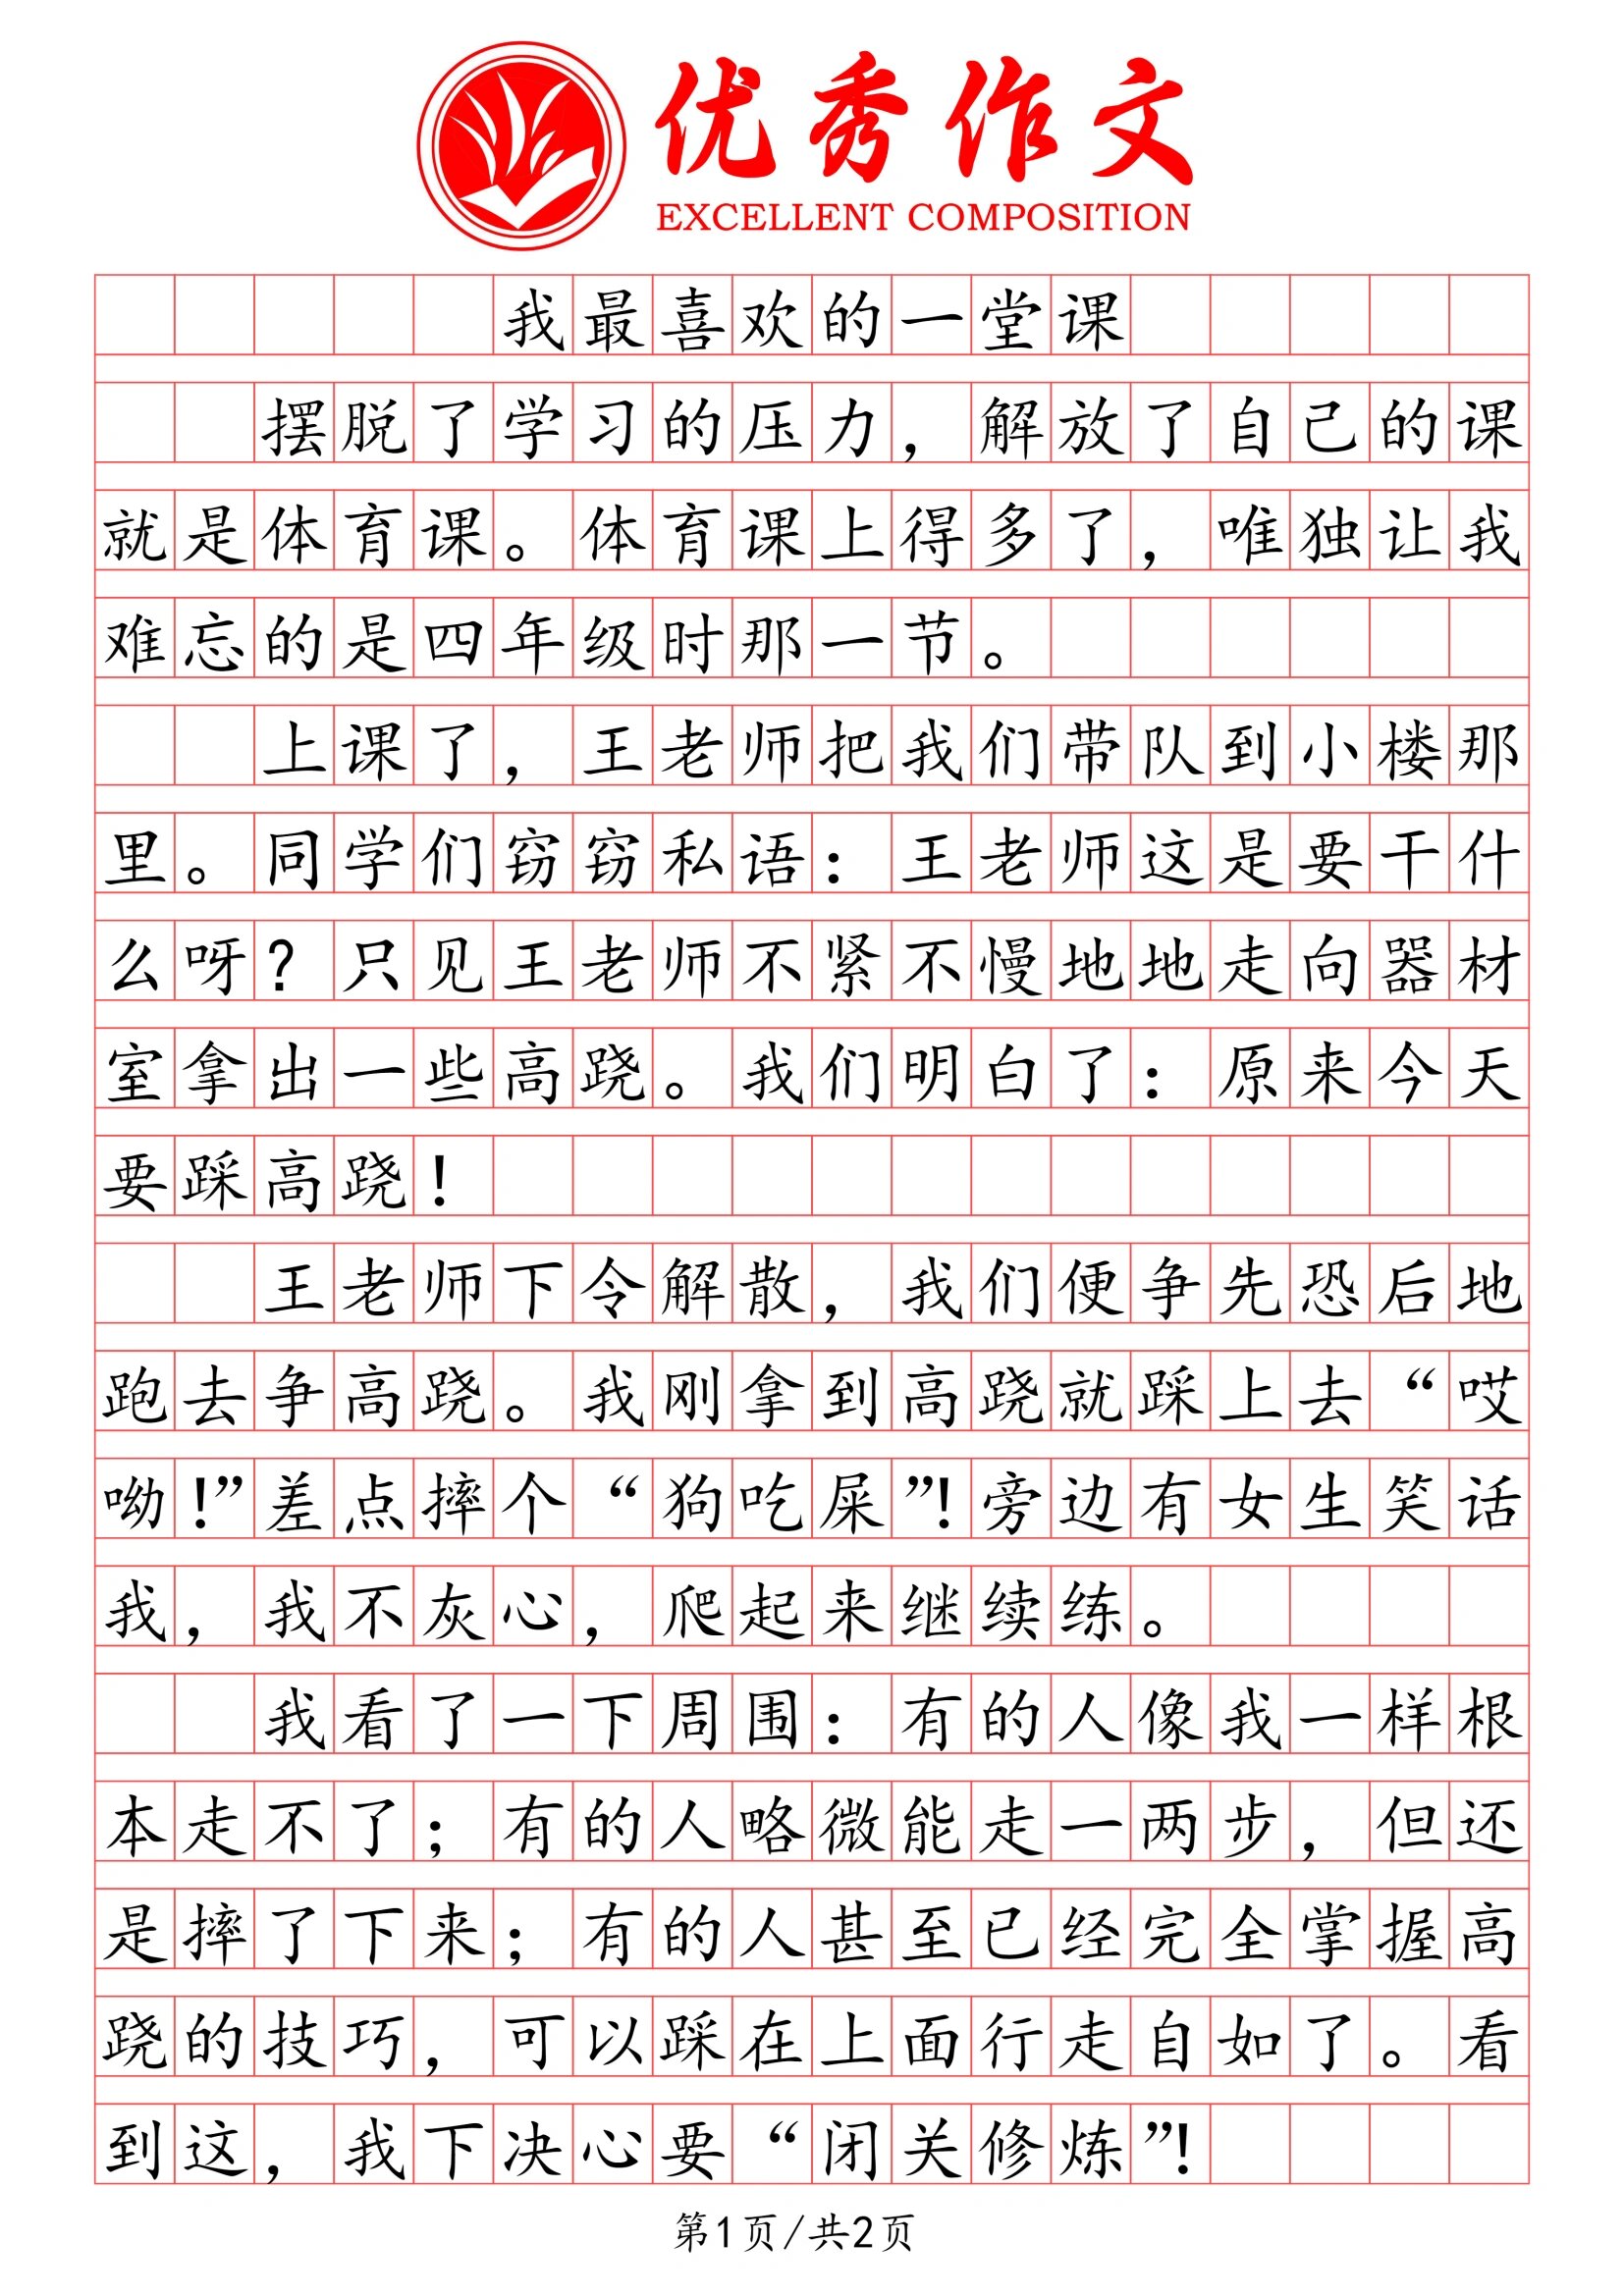 优秀作文
EXCELLENT COMPOSITION
我最喜欢的一堂课
摆脱了学习的压力，解放了自己的课
就是体育课。体育课上得多了，唯独让我
难忘的是四年级时那一节。
上课了，王老师把我们带队到小楼那
里。同学们窃窃私语：王老师这是要干什
么呀？只见王老师不紧不慢地地走向器材
室拿出一些高跷。我们明白了：原来今天
要踩高跷！
王老师下令解散，我们便争先恐后地
跑去争高跷。我刚拿到高跷就踩上去“哎
呦！”差点摔个“狗吃屎”！旁边有女生笑话
我，我不灰心，爬起来继续练。
我看了一下周围：有的人像我一样根
本走不了；有的人略微能走一两步，但还
是摔了下来；有的人甚至已经完全掌握高
跷的技巧，可以踩在上面行走自如了。看
到这，我下决心要“闭关修炼”！
第1页/共2页